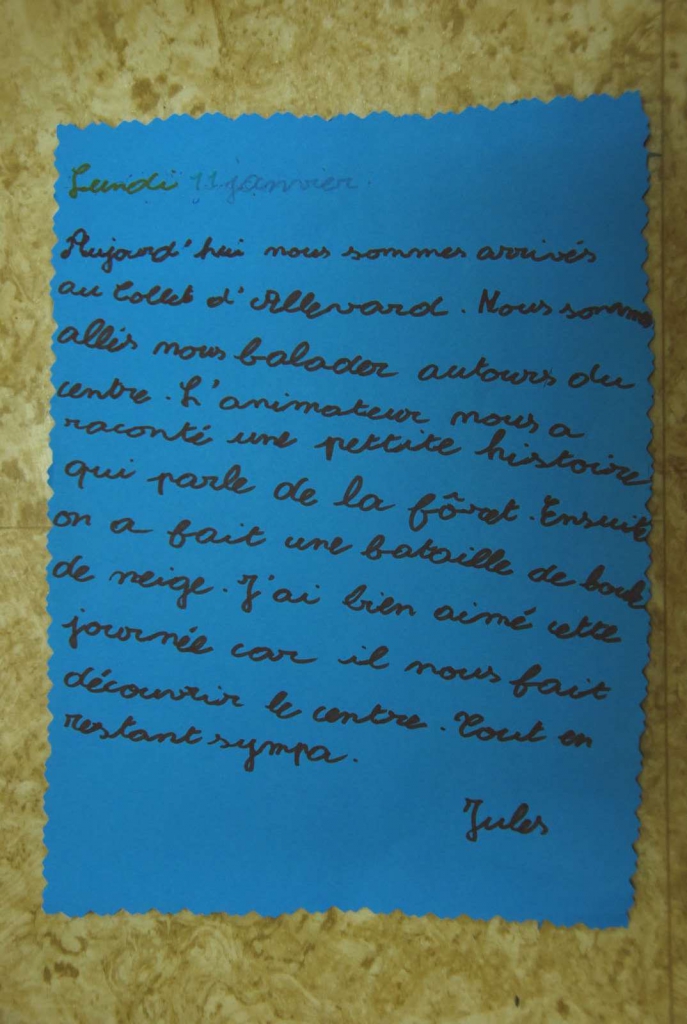 Lundi 11 janvier.
Aujourd'hui nous sommes arrivés
au Collet d'Allevard. Nous somme
allés nous balader autours du
centre. L'animateur nous a
raconté une pettite histoire
qui parle de la fôret. Ensuite
on a fait une bataille de boule
de neige. J'ai bien aimé cette
journée car il nous fait
découvrir le centre. Tout en
restant sympa.
Jules